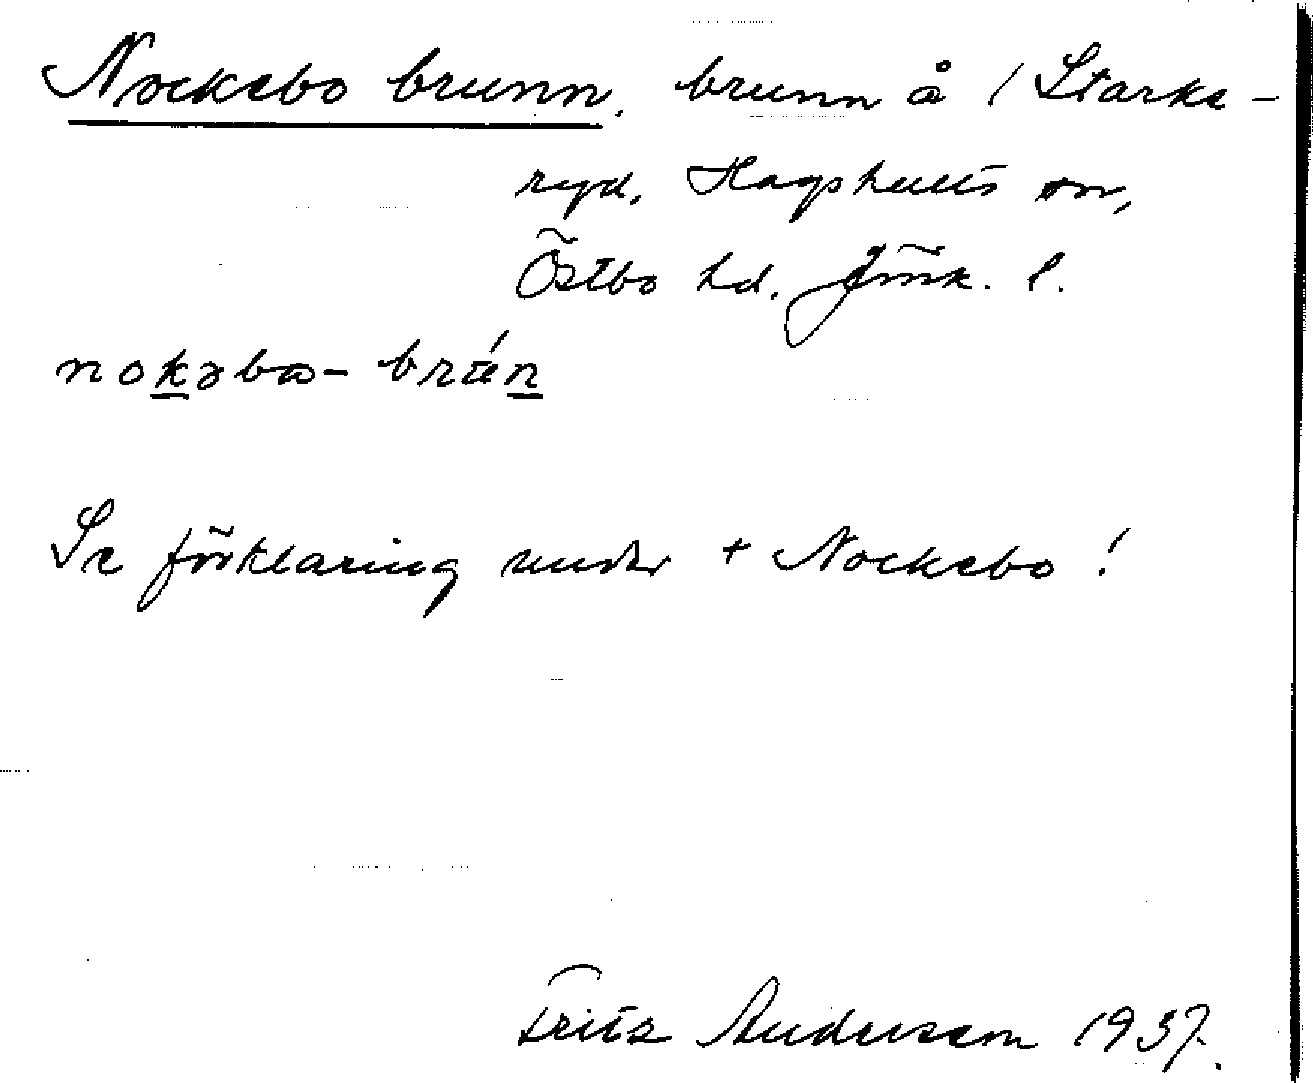 Nockebo brunn. brunn å / Starke-
ryd, Hagshults sn,
Östbo hd. Jönk. l.
nokəbω-brún
Se förklaring under + Nockebo!
Fritz Andersson 1937.